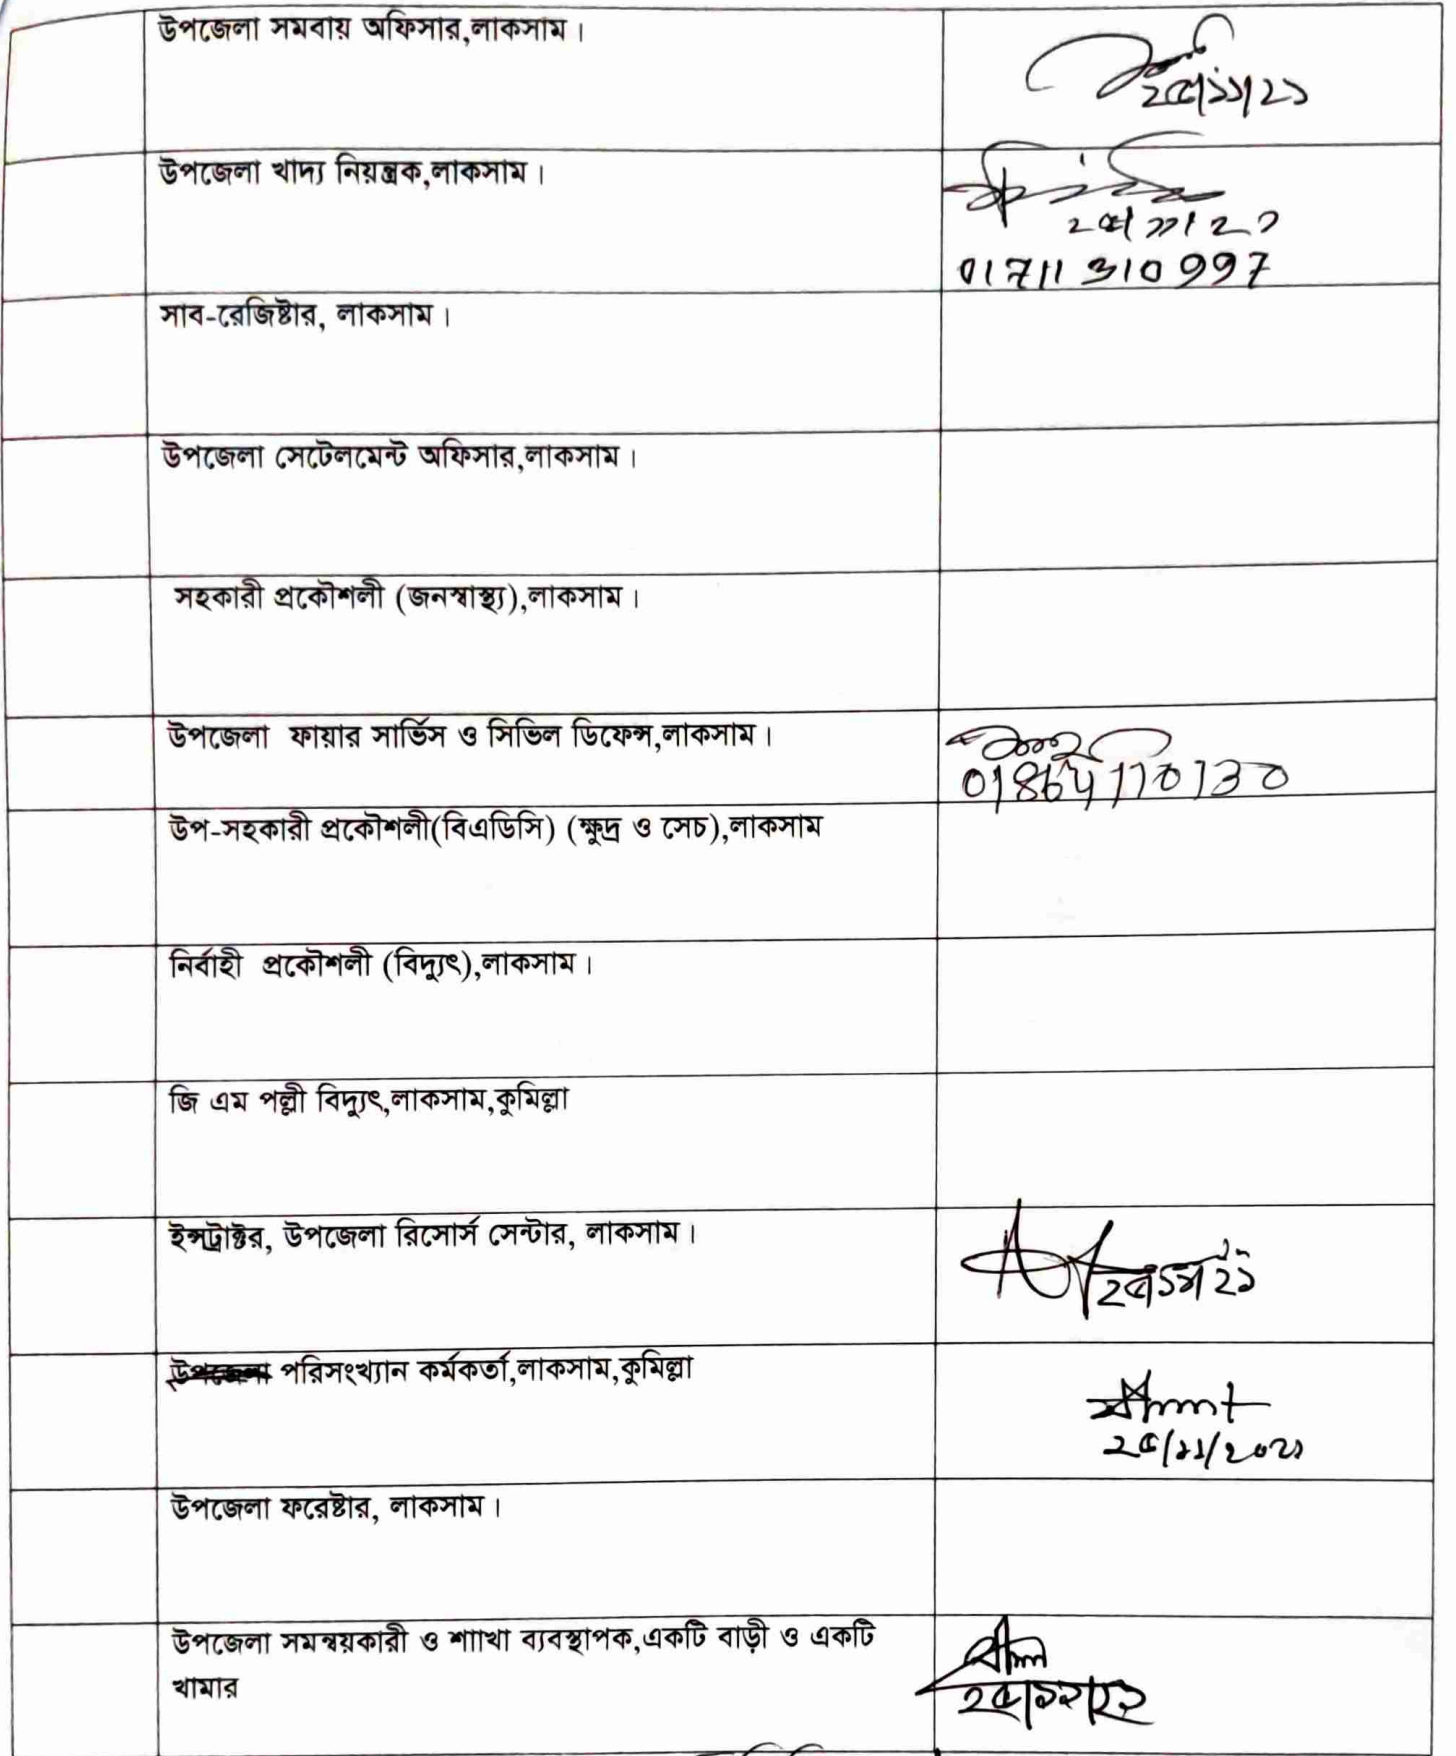 উপজেলা সমবায় অফিসার,লাকসাম।
২৫/১১/২১
উপজেলা খাদ্য নিয়ন্ত্রক,লাকসাম।
২৫/১১/২১
01711 310997
সাব-রেজিষ্টার, লাকসাম।
উপজেলা সেটেলমেন্ট অফিসার,লাকসাম।
সহকারী প্রকৌশলী (জনস্বাস্থ্য),লাকসাম।
উপজেলা ফায়ার সার্ভিস ও সিভিল ডিফেন্স,লাকসাম।
উপ-সহকারী প্রকৌশলী(বিএডিসি) (ক্ষুদ্র ও সেচ),লাকসাম
নির্বাহী প্রকৌশলী (বিদ্যুৎ),লাকসাম।
জি এম পল্লী বিদ্যুৎ,লাকসাম,কুমিল্লা
ইন্সট্রাক্টর, উপজেলা রিসোর্স সেন্টার, লাকসাম।
উপজেলা পরিসংখ্যান কর্মকর্তা,লাকসাম,কুমিল্লা
২৫/১১/২০২১
উপজেলা ফরেষ্টার, লাকসাম।
উপজেলা সমন্বয়কারী ও শাাখা ব্যবস্থাপক,একটি বাড়ী ও একটি
খামার